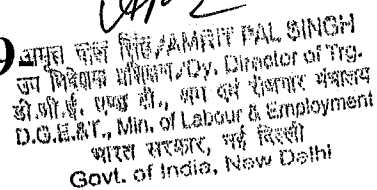 9
अमृत पाल सिंह/AMRIT PAL SINGH
उप निदेशक प्रशिक्षण/Dy. Director of Trg.
डी.जी.ई. एण्ड टी., श्रम एवं रोजगार मंत्रालय
D.G.E.&T., Min. of Labour & Employment
भारत सरकार, नई दिल्ली
Govt. of India, New Delhi